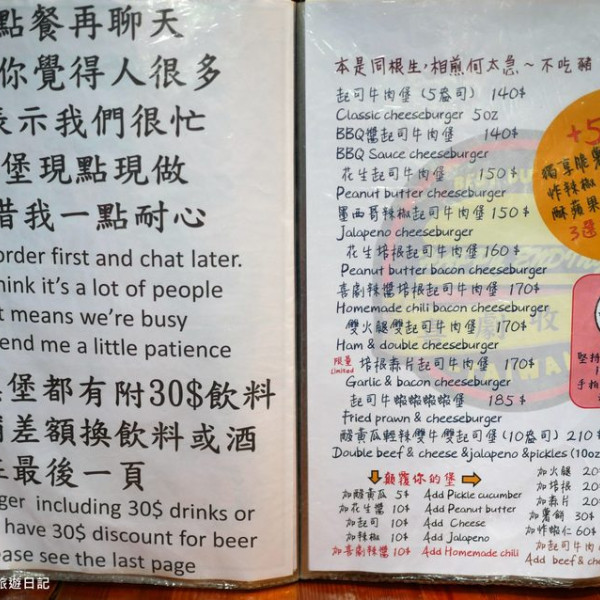 點餐再聊天
你覺得人很多
表示我們很忙
堡現點現做
借我一點耐心
order first and chat later.
think it's a lot of people
it means we're busy
lend me a little patience
堡都有附30$飲料
補差額換飲料或酒
在最後一頁
including 30$ drinks or
have 30$ discount for beer
please see the last page
旅遊日記
本是同根生,相煎何太急~不吃豬
起司牛肉堡(5盎司) 140$
Classic cheeseburger 5oz
BBQ醬起司牛肉堡 140$
BBQ Sauce cheeseburger
花生起司牛肉堡 150$
Peanut butter cheeseburger
墨西哥辣椒起司牛肉堡 150$
Jalapeno cheeseburger
花生培根起司牛肉堡 160$
Peanut butter bacon cheeseburger
喜劇辣醬培根起司牛肉堡 170$
Homemade chili bacon cheeseburger
雙火腿雙起司牛肉堡 170$
Ham & double cheeseburger
限量 Limited 培根蒜片起司牛肉堡 170$
Garlic & bacon cheeseburger
起司牛蝦蝦蝦蝦堡 185$
Fried prawn & cheeseburger
酸黃瓜輕辣雙牛雙起司堡(10盎司) 210$
Double beef & cheese &jalapeno &pickles (10oz
顛覆你的堡
加酸黃瓜 5$ Add Pickle cucumber
加花生醬 10$ Add Peanut butter
加起司 10$ Add Cheese
加辣椒 10$ Add Jalapeno
加喜劇辣醬 10$ Add Homemade chili
加火腿 20$
加培根 20$
加蒜片 20$
加薯餅 30$
加炸蝦仁 60$
加起司牛肉
Add beef & che
+5
獨享脆薯
炸辣椒
酥蘋果
3選
堅持
手拍